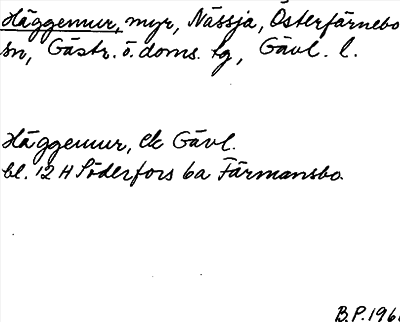 Häggemur, myr, Nässja, Österfärnebo
sn, Gästr. ö. doms. tg, Gävl. l.
Häggemur, ek Gävl.
bl. 12 H Söderfors 6a Färmansbo.
B.P. 196